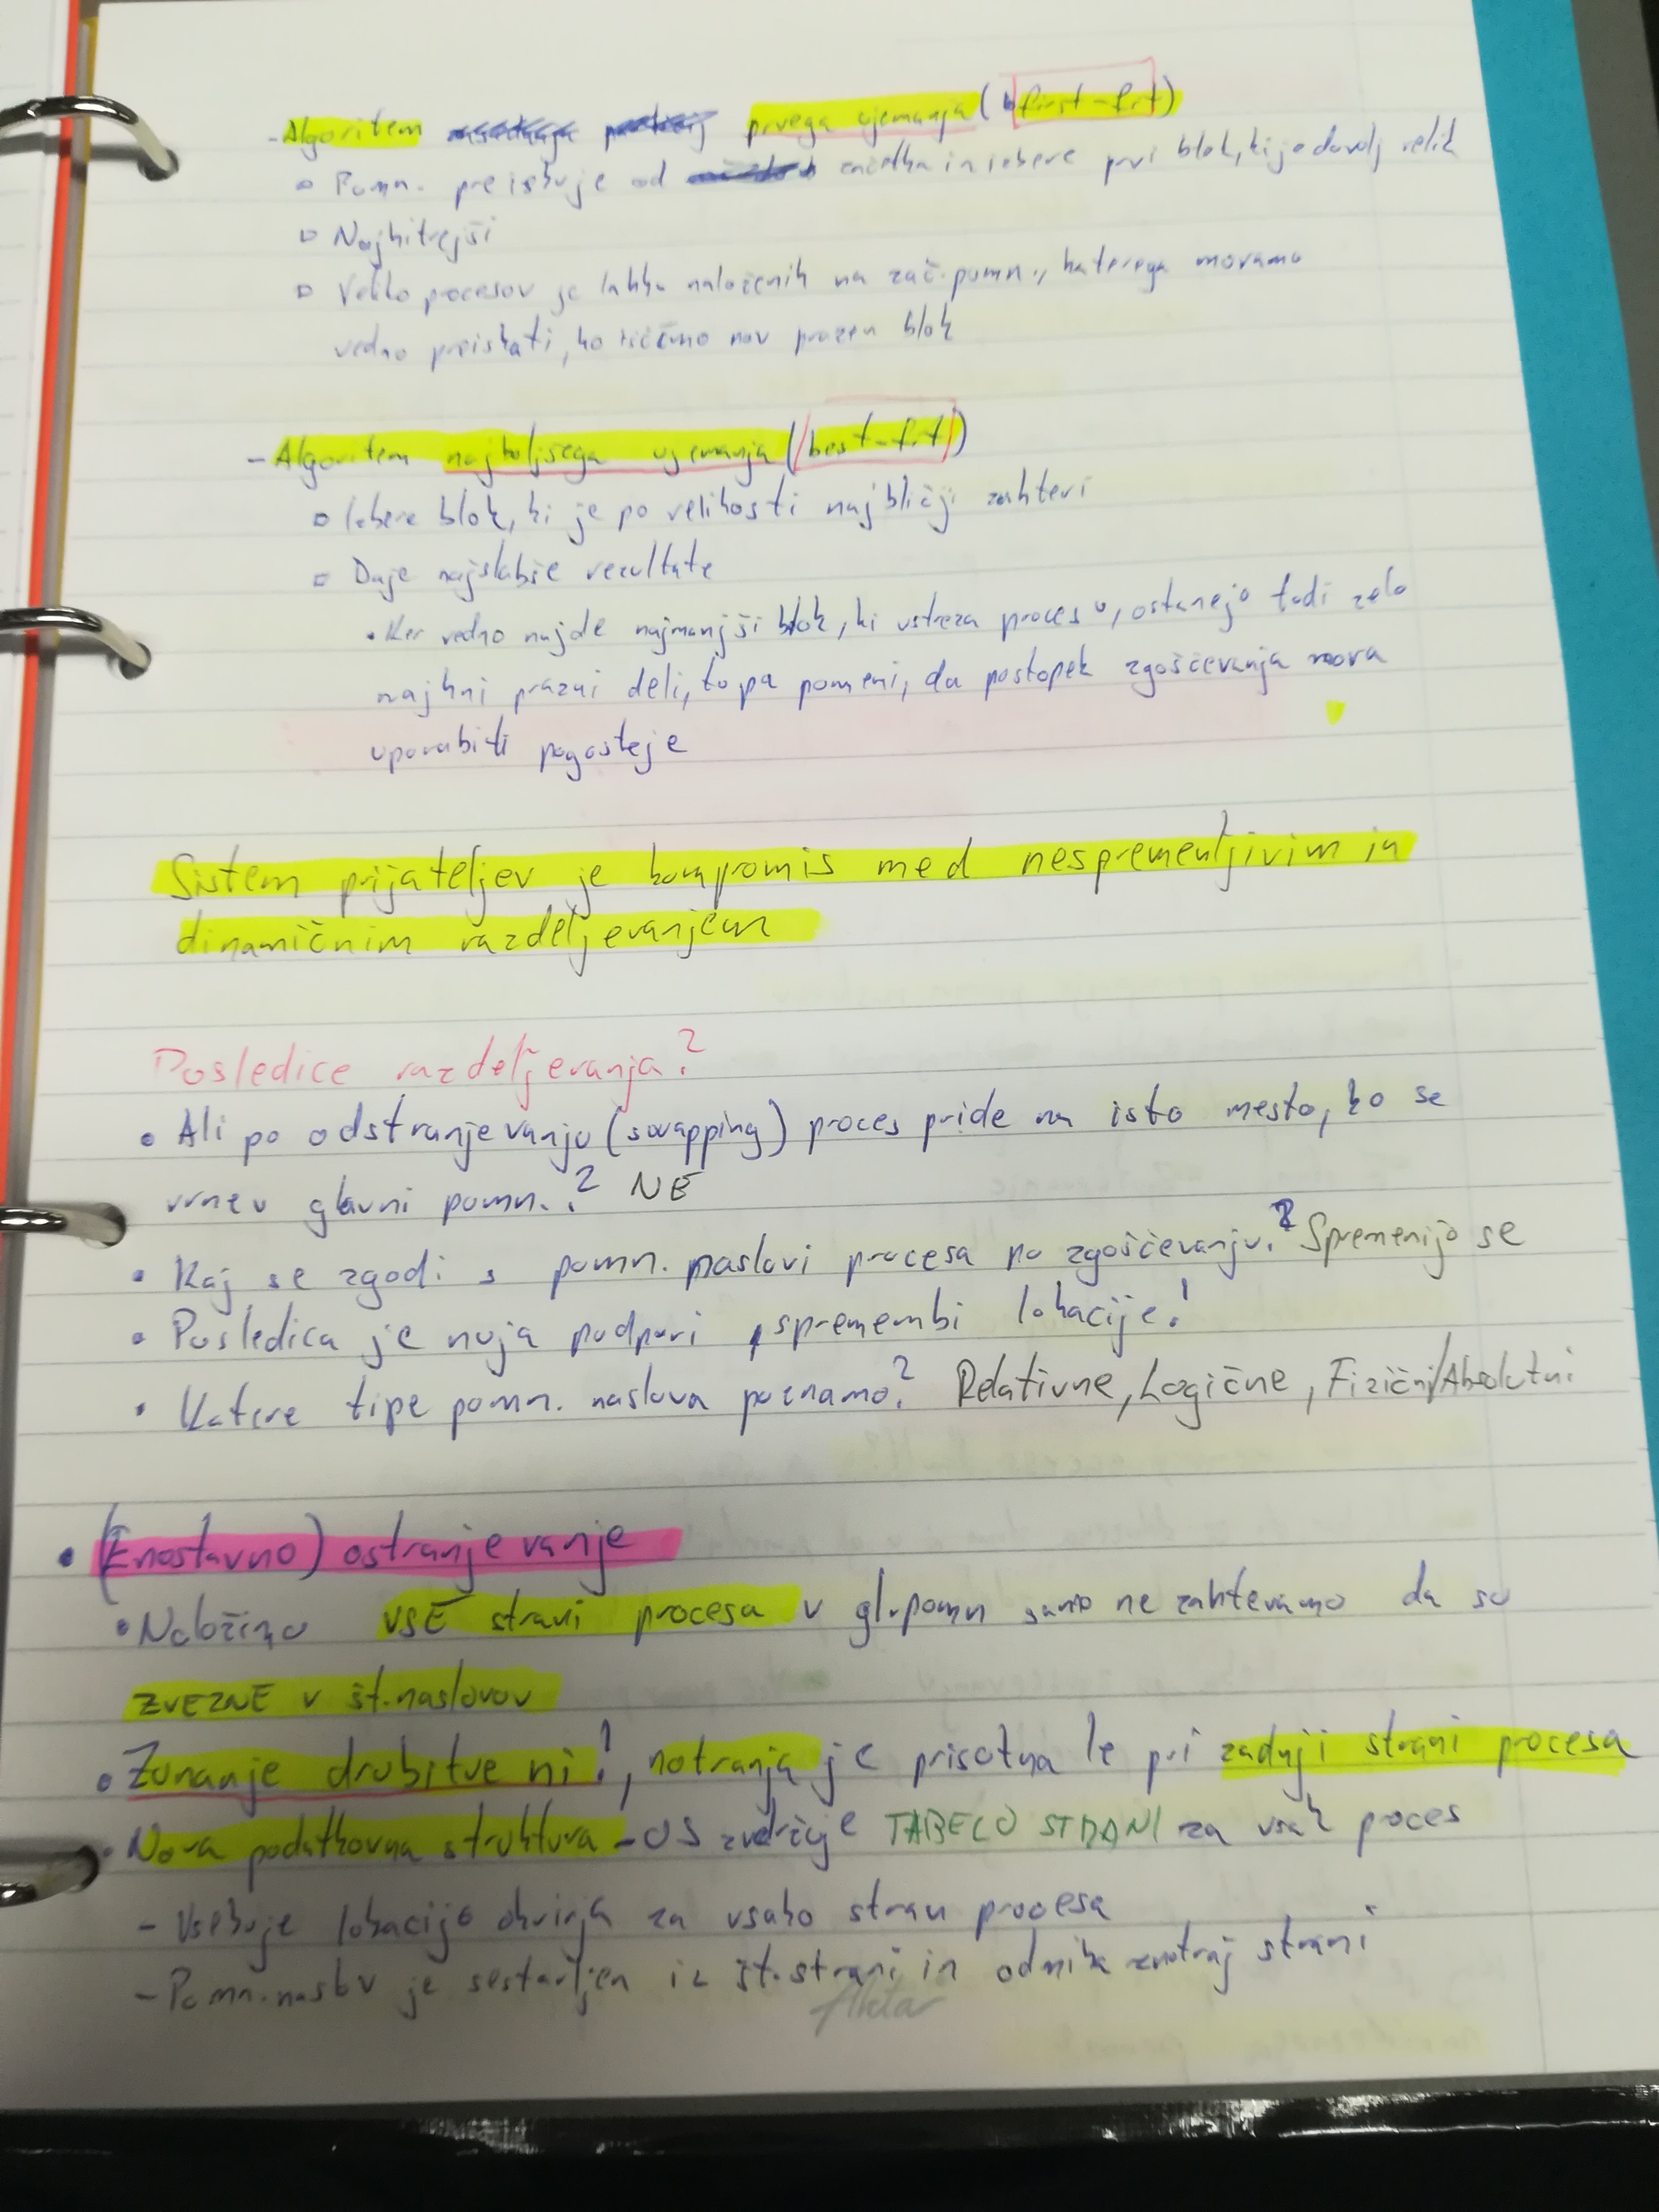 - Algoritem prvega ujemanja (first-fit)
▫ Pomn. preiskuje od začetka in izbere prvi blok, ki je dovolj velik
▫ Najhitrejši
▫ Veliko procesov je lahko naloženih na zač. pomn., katerega moramo
vedno preiskati, ko iščemo nov prazen blok
- Algoritem najboljšega ujemanja (best-fit)
▫ Izbere blok, ki je po velikosti najbližji zahtevi
▫ Daje najslabše rezultate
• Ker vedno najde najmanjši blok, ki ustreza procesu, ostanejo tudi zelo
majhni prazni deli, to pa pomeni, da postopek zgoščevanja mora
uporabiti pogosteje
Sistem prijateljev je kompromis med nespremenljivim in
dinamičnim razdeljevanjem
Posledice razdeljevanja?
• Ali po odstranjevanju (swapping) proces pride na isto mesto, ko se
vrne v glavni pomn.? NE
• Kaj se zgodi s pomn. naslovi procesa po zgoščevanju? Spremenijo se
• Posledica je nuja podpori spremembi lokacije!
• Katere tipe pomn. naslova poznamo? Relativne, Logične, Fizični/Absolutni
• (Enostavno) ostranjevanje
• Naložimo VSE strani procesa v gl. pomn samo ne zahtevamo da so
ZVEZNE v št. naslovov
• Zunanje drobitve ni!, notranja je prisotna le pri zadnji strani procesa
• Nova podatkovna struktura - OS vzdržuje TABELO STRANI za vsak proces
- Vsebuje lokacijo okvirja za vsako stran procesa
- Pomn. naslov je sestavljen iz št. strani in odmika znotraj strani